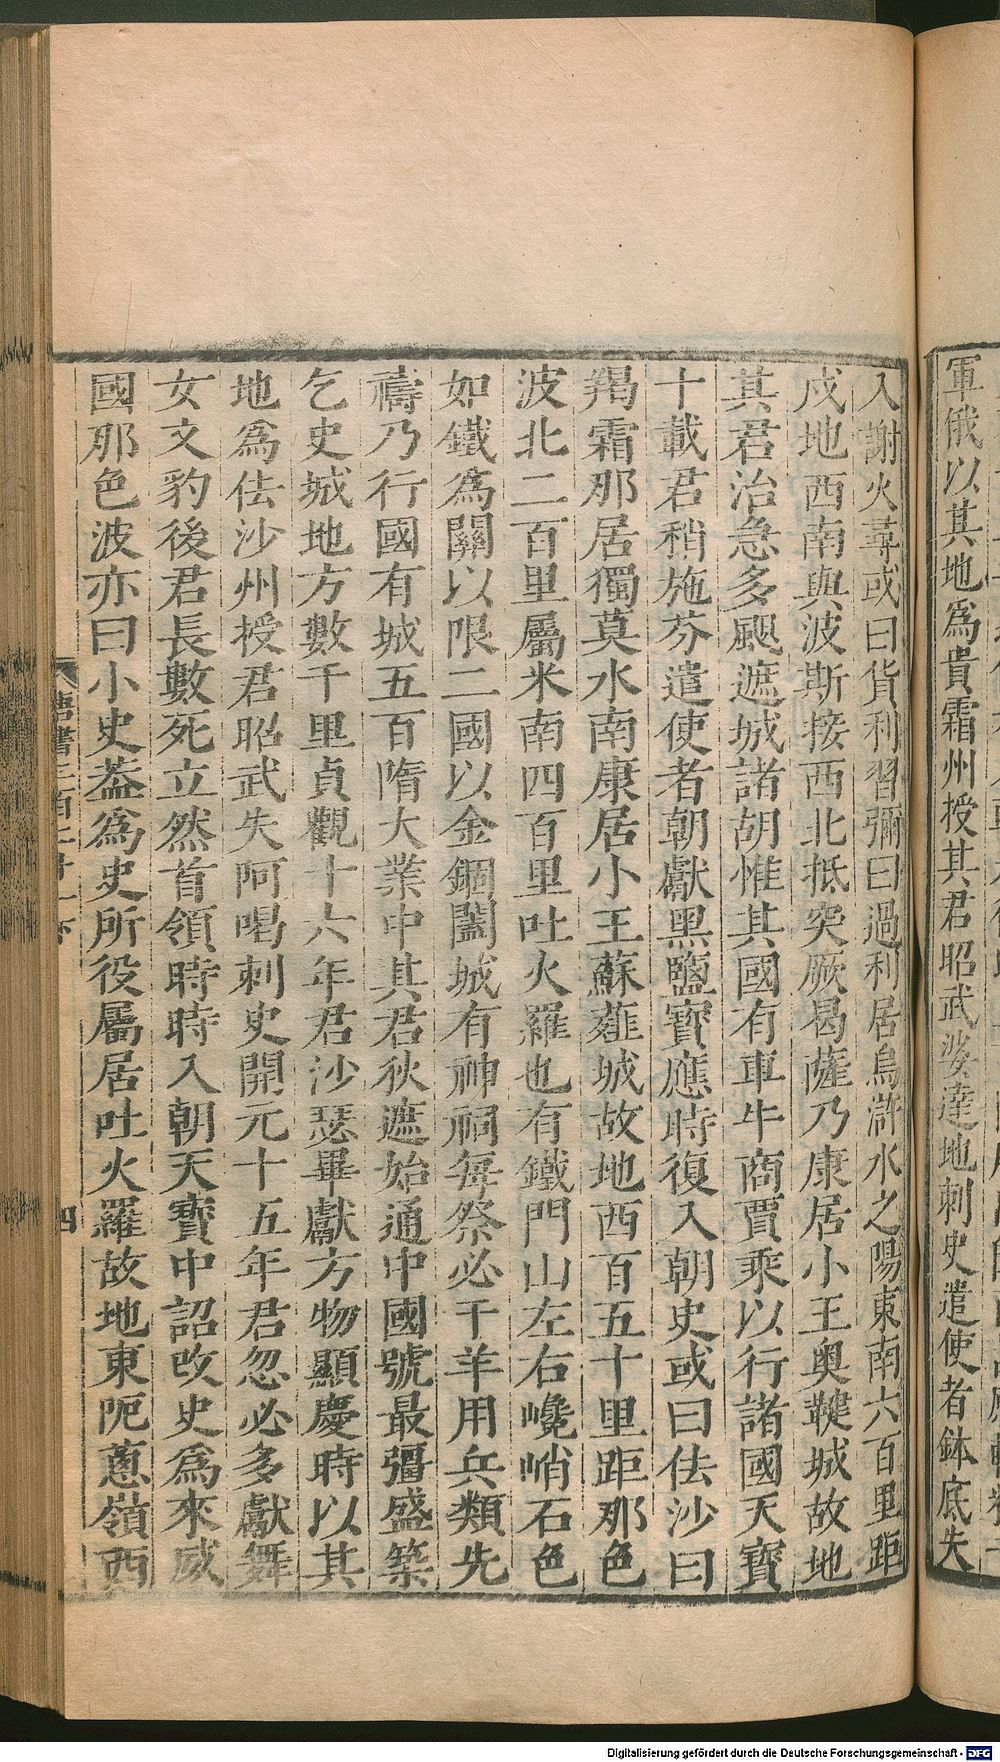 軍俄以其地爲貴霜州授其君昭武婆達地刺史遣使者鉢底失
入謝火尋或曰貨利習彌曰過利居烏滸水之陽東南六百里距
戍地西南與波斯接西北抵突厥曷薩乃康居小王奧鞬城故地
其君治急多颶遮城諸胡惟其國有車牛商賈乘以行諸國天寶
十載君稍施芬遣使者朝獻黑鹽寶應時復入朝史或曰佉沙曰
羯霜那居獨莫水南康居小王蘇薤城故地西百五十里距那色
波北二百里屬米南四百里吐火羅也有鐵門山左右巉峭石色
如鐵爲關以限二國以金錮闔城有神祠每祭必千羊用兵類先
禱乃行國有城五百隋大業中其君狄遮始通中國號最彊盛築
乞史城地方數千里貞觀十六年君沙瑟畢獻方物顯慶時以其
地爲佉沙州授君昭武失阿喝刺史開元十五年君忽必多獻舞
女文豹後君長數死立然首領時時入朝天寶中詔改史爲來威
國那色波亦曰小史蓋爲史所役屬居吐火羅故地東阨蔥嶺西
唐書二百二十一下
四
Digitalisierung gefördert durch die Deutsche Forschungsgemeinschaft - DFG